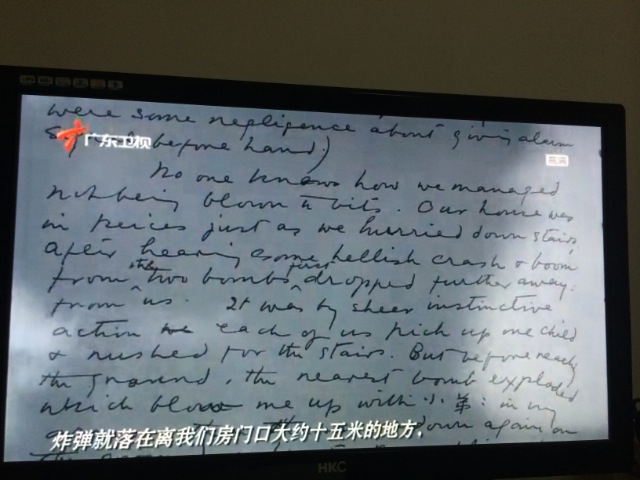 were some negligence about giving alarm
广东卫视
before hand)
高清
No one knows how we managed
not being blown to bits. Our house was
in peices just as we hurried down stairs
after hearing some hellish crash & boom
from the two bombs first dropped further away
from us. It was by sheer instinctive
action we each of us pick up one child
& rushed for the stairs. But before reachg
the ground, the nearest bomb exploded
which blow me up with 小弟 in my
down again on
炸弹就落在离我们房门口大约十五米的地方,
the
HKC